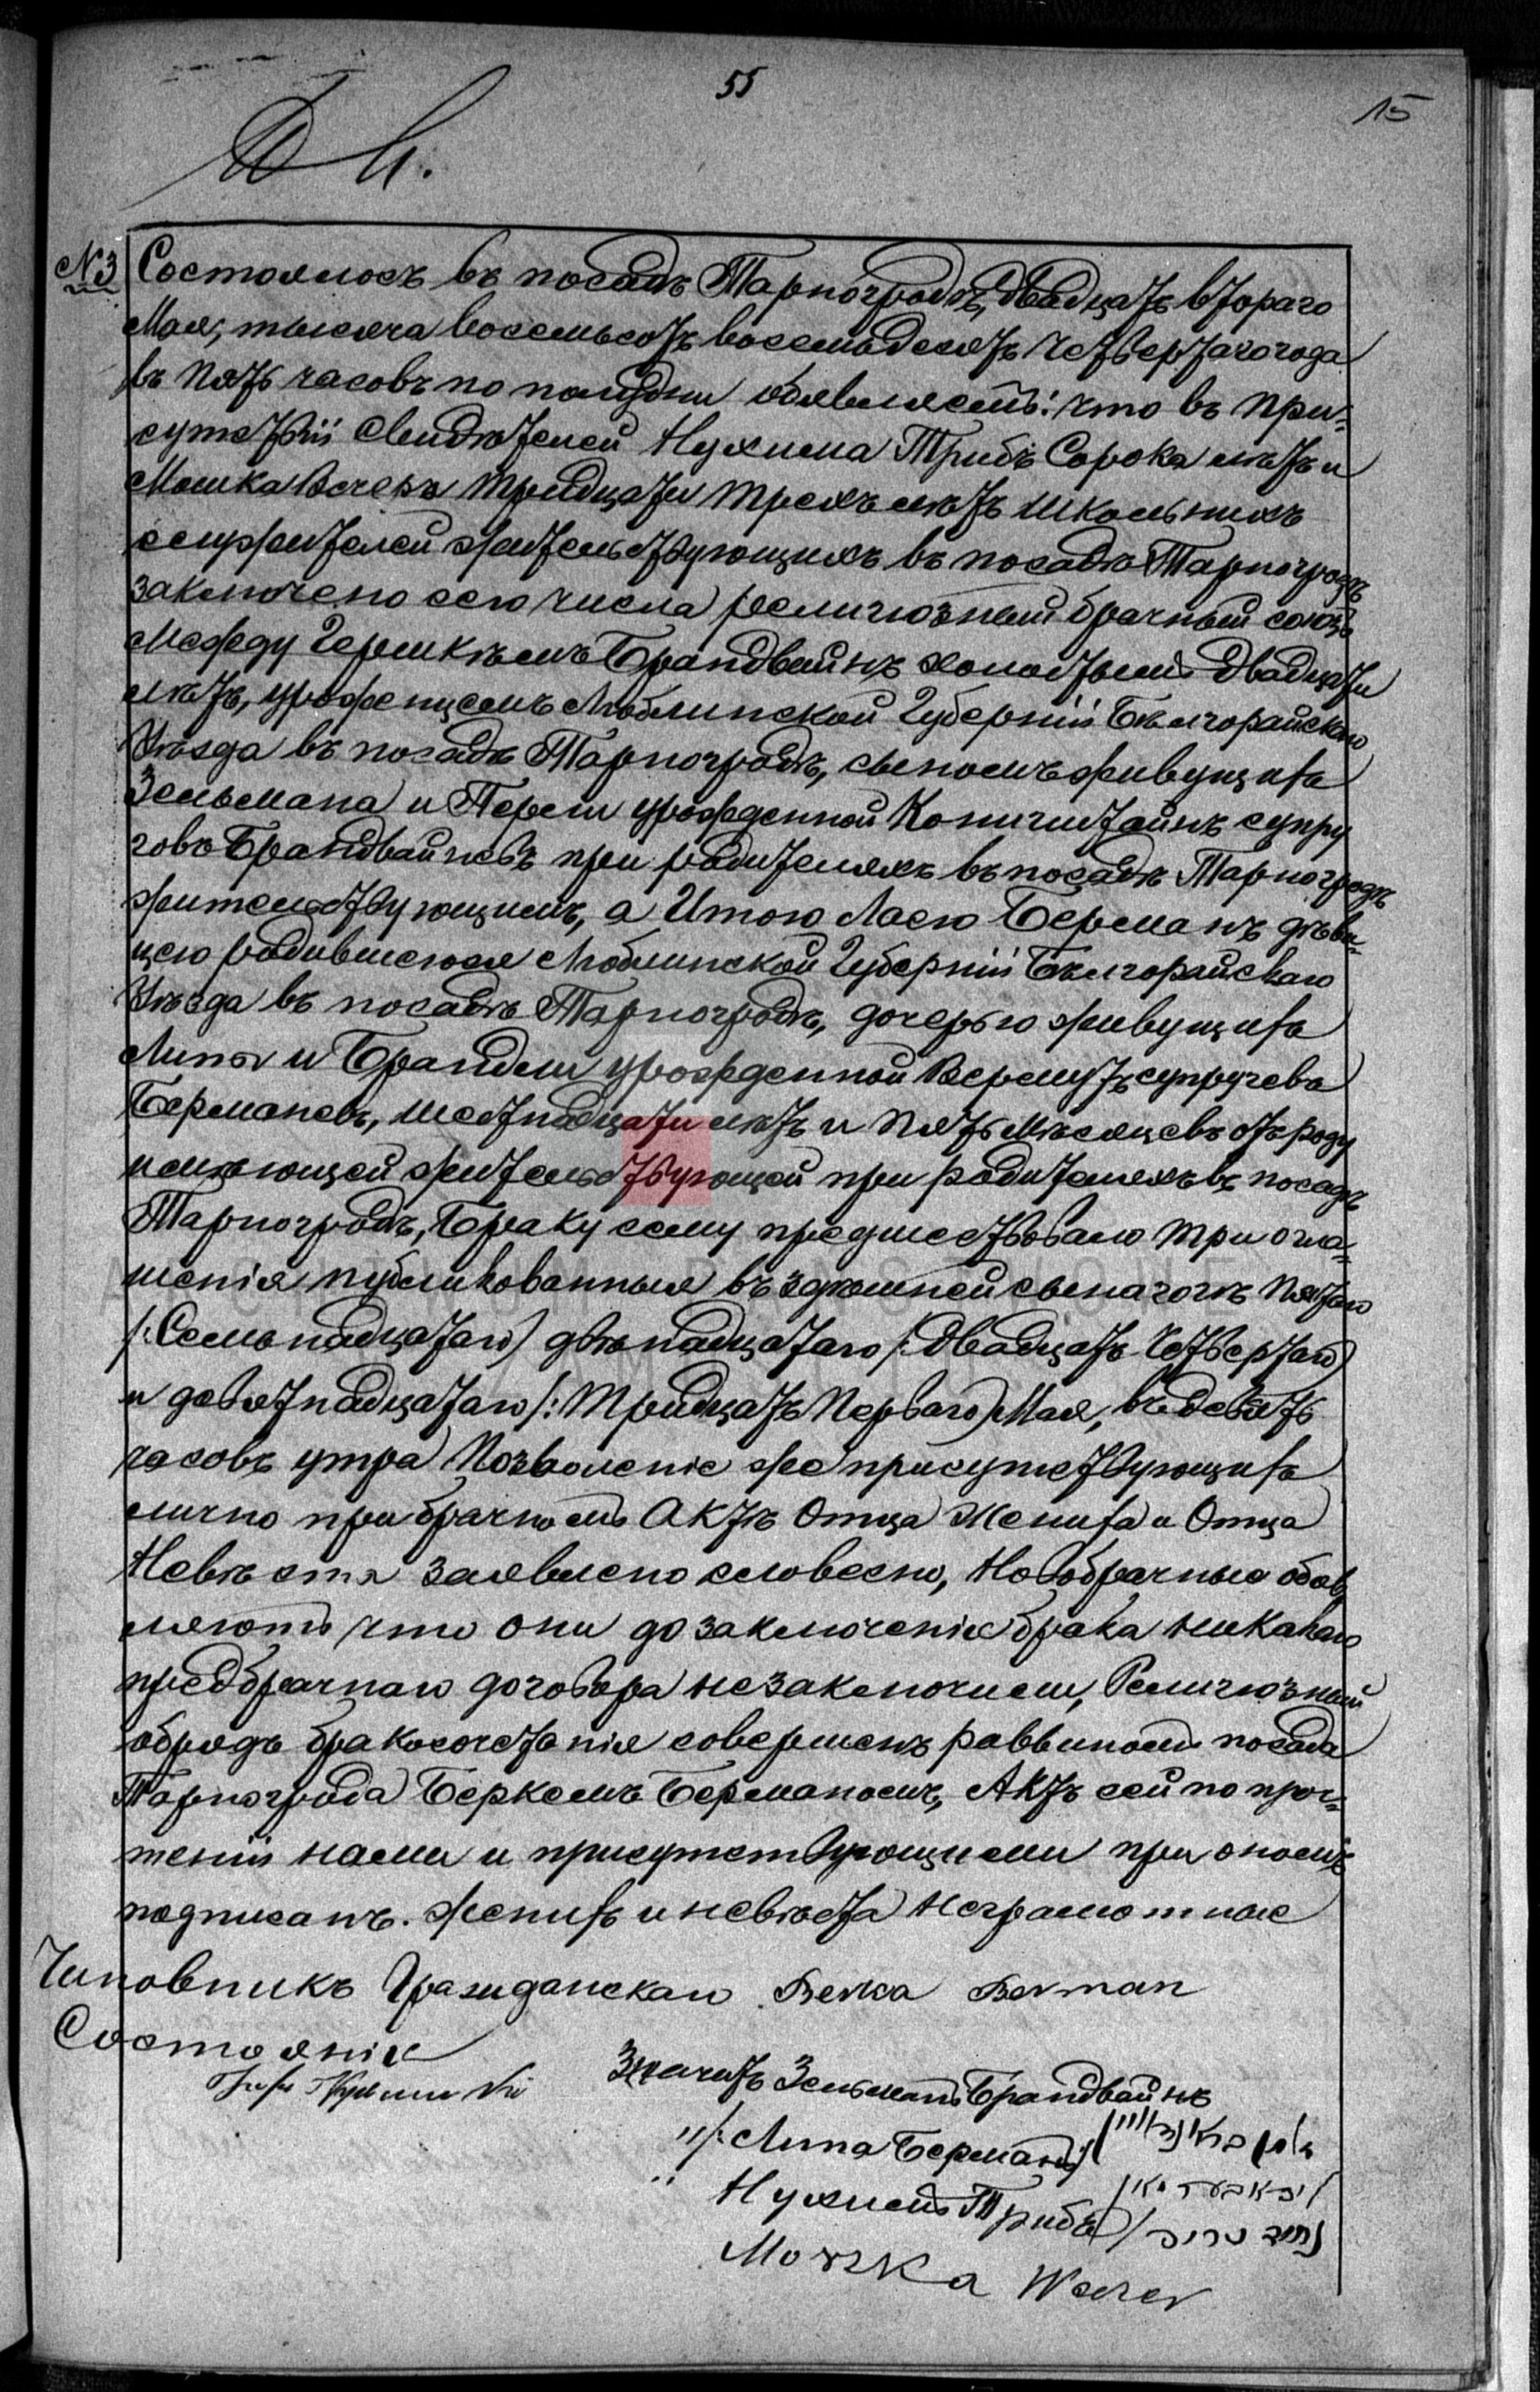 55
15
№3 Состоялось въ посадѣ Тарногродѣ, двадцать втораго
Мая, тысяча восемьсотъ восемьдесятъ четвертаго года
въ пять часовъ по полудни объявляемъ: что въ при-
сутствіи свидѣтелей Нухима Трибъ сорока лѣтъ и
Мошка Вечеръ тридцати трехъ лѣтъ школьныхъ
служителей жительствующихъ въ посадѣ Тарногродѣ
заключено сего числа религіозный брачный союзъ
между Гершкѣмъ Брандвайнъ холостымъ двадцати
лѣтъ, уроженцемъ Люблинской Губерніи Бѣлгорайскаго
Уѣзда въ посадѣ Тарногродѣ, сыномъ живущихъ
Зельмана и Перли урожденной Конигштайнъ супру
говъ Брандвайневъ при родителяхъ въ посадѣ Тарногродѣ
жительствующимъ, а Итою Ласею Берманъ дѣви-
цею родившеюся Люблинской Губерніи Бѣлгорайскаго
Уѣзда въ посадѣ Тарногродѣ, дочерью живущихъ
Липы и Брандли урожденной Вермутъ супруговъ
Бермановъ, шестнадцати лѣтъ и пять мѣсяцевъ отъ роду
имѣющей жительствующей при родителяхъ въ посадѣ
Тарногродѣ, Браку сему предшествовало три огла-
шенія публикованныя въ здѣшней сынагогѣ пятаго
/:Семьнадцатаго) двѣнадцатаго /:двадцать четвертаго)
и девятнадцатаго /:тридцать перваго) Мая, въ девять
часовъ утра Позволеніе же присутствующихъ
лично при брачномъ Актѣ Отца Жениха и Отца
Невѣстя заявлено словесно, Новобрачные объяв
ляютъ что они до заключенія брака никакаго
предбрачнаго договора незаключили, Религіозный
обрядъ бракосочетанія совершенъ раввиномъ посада
Тарнограда Беркемъ Берманомъ, Актъ сей по проч-
теніи нами и присутствующими при ономъ
подписанъ. женихъ и невѣста неграмотные
Чиновникъ Гражданскаго Berka Berman
Состоянія
Значитъ Зельманъ Брандвайнъ
"/: Липа Берманъ
" Нухимъ Трибъ
Moszka Weczer